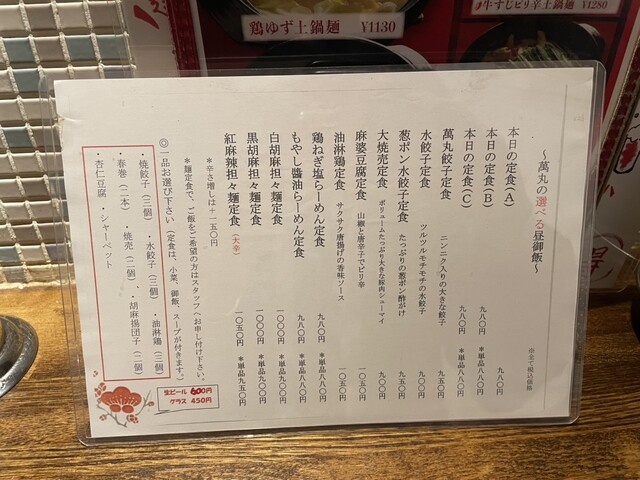 鶏ゆず土鍋麺 ¥1130
牛すじピリ辛土鍋麺 ¥1280
～萬丸の選べる昼御飯～
※全て税込価格
本日の定食(A) 九八〇円
本日の定食(B) 九八〇円 *単品八八〇円
本日の定食(C) 九八〇円 *単品八八〇円
萬丸餃子定食 ニンニク入りの大きな餃子 九五〇円
水餃子定食 ツルツルモチモチの水餃子 九〇〇円
葱ポン水餃子定食 たっぷりの葱ポン酢がけ 九五〇円
大焼売定食 ボリュームたっぷり大きな豚肉シューマイ 九〇〇円
麻婆豆腐定食 山椒と唐辛子でピリ辛 一〇五〇円
油淋鶏定食 サクサク唐揚げの香味ソース 一〇五〇円
鶏ねぎ塩らーめん定食 九八〇円 *単品八八〇円
もやし醬油らーめん定食 九八〇円 *単品八八〇円
白胡麻担々麺定食 一〇〇〇円 *単品九〇〇円
黒胡麻担々麺定食 一〇〇〇円 *単品九〇〇円
紅麻辣担々麺定食 (大辛) 一〇五〇円 *単品九五〇円
*辛さ増しは+一五〇円
*麺定食で、ご飯をご希望の方はスタッフへお申し付け下さい。
◎一品お選び下さい(定食は、小菜、御飯、スープが付きます。)
・焼餃子(三個) ・水餃子(三個) ・油淋鶏(三個)
・春巻(二本) ・焼売(二個) ・胡麻揚団子(二個)
・杏仁豆腐 ・シャーベット
生ビール 600円
グラス 450円